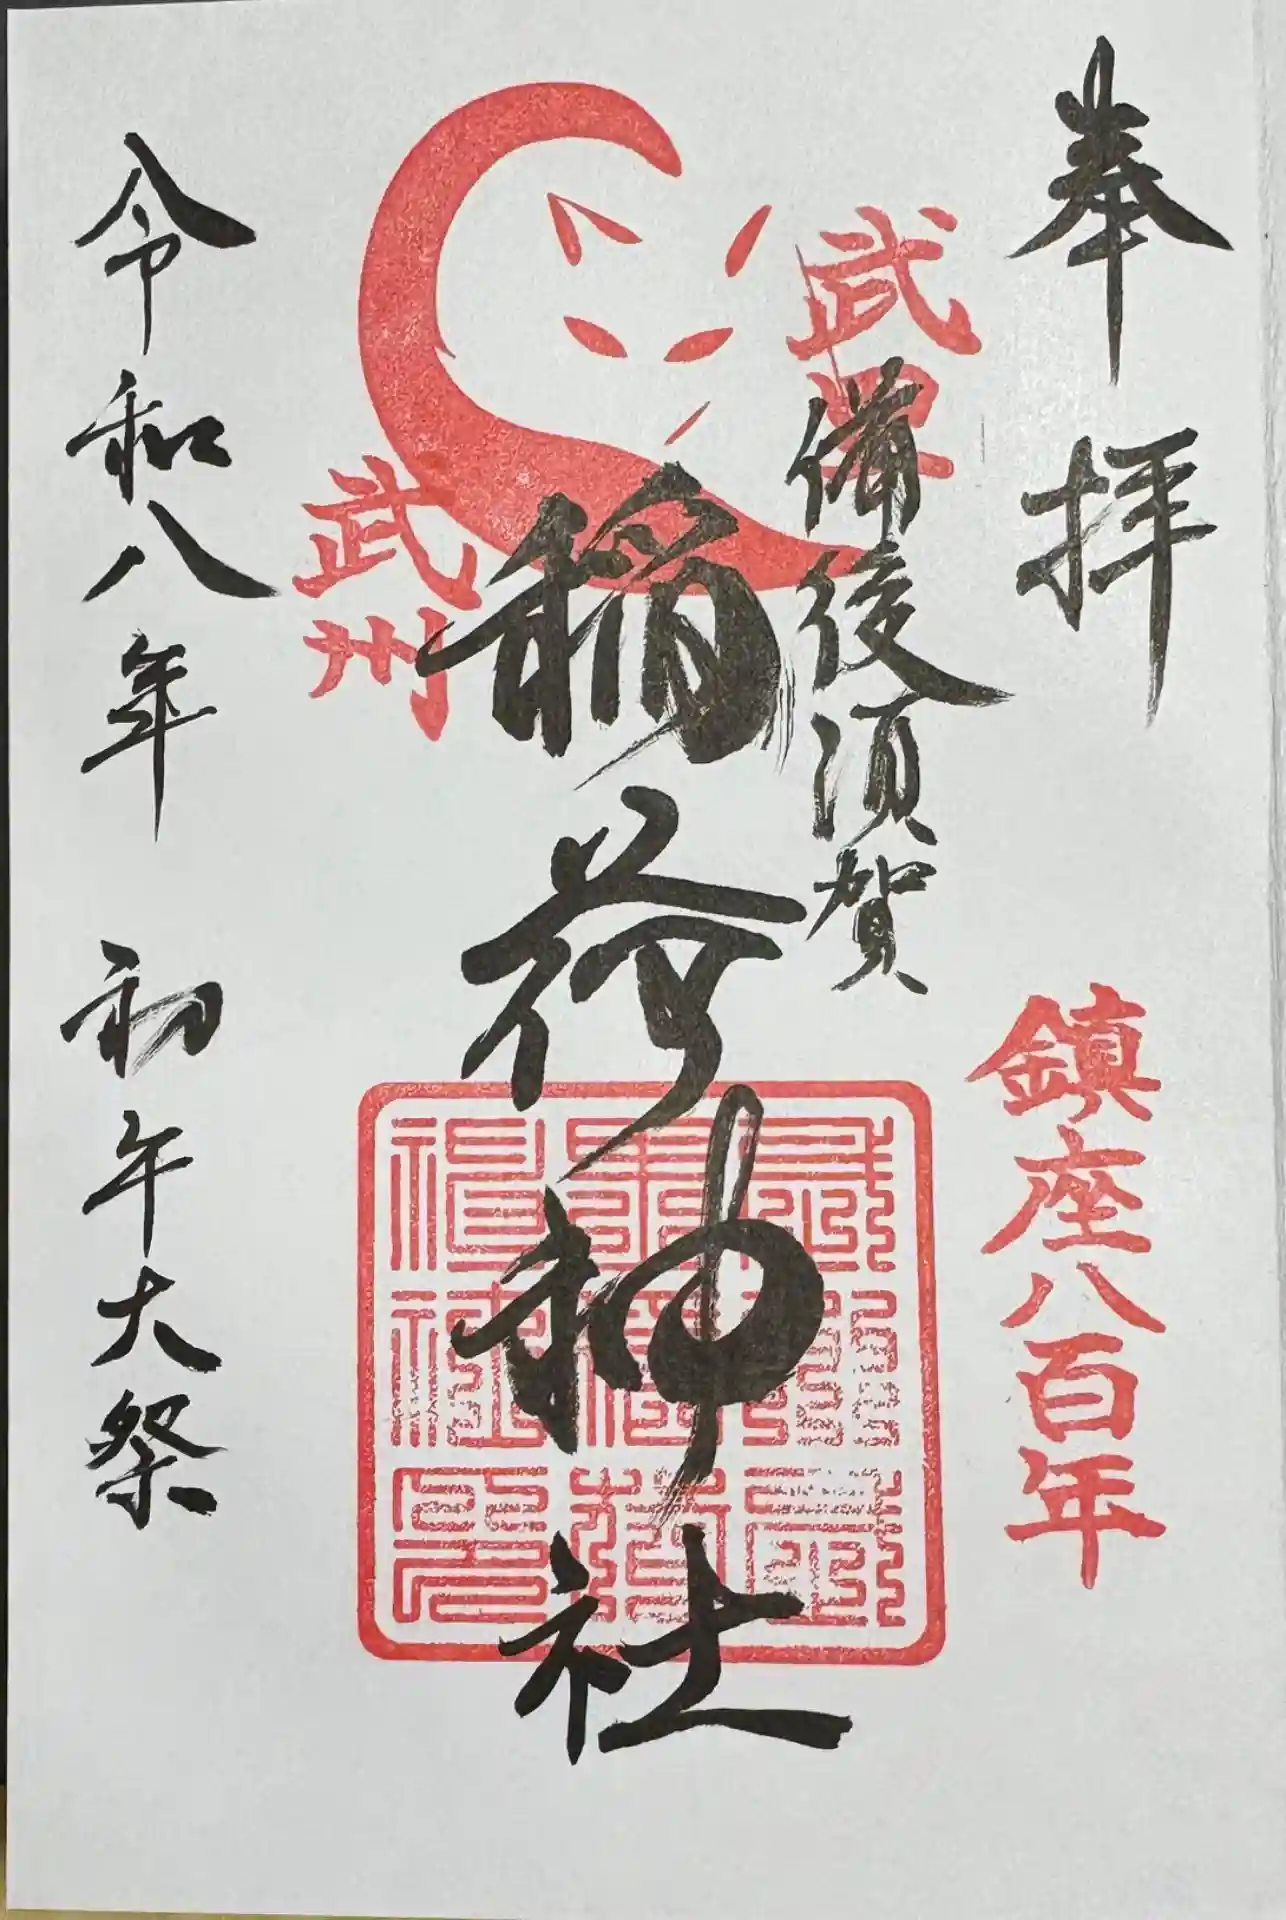 奉拝
鎮座八百年
武里
備後須賀
稲荷神社
武州
令和八年 初午大祭